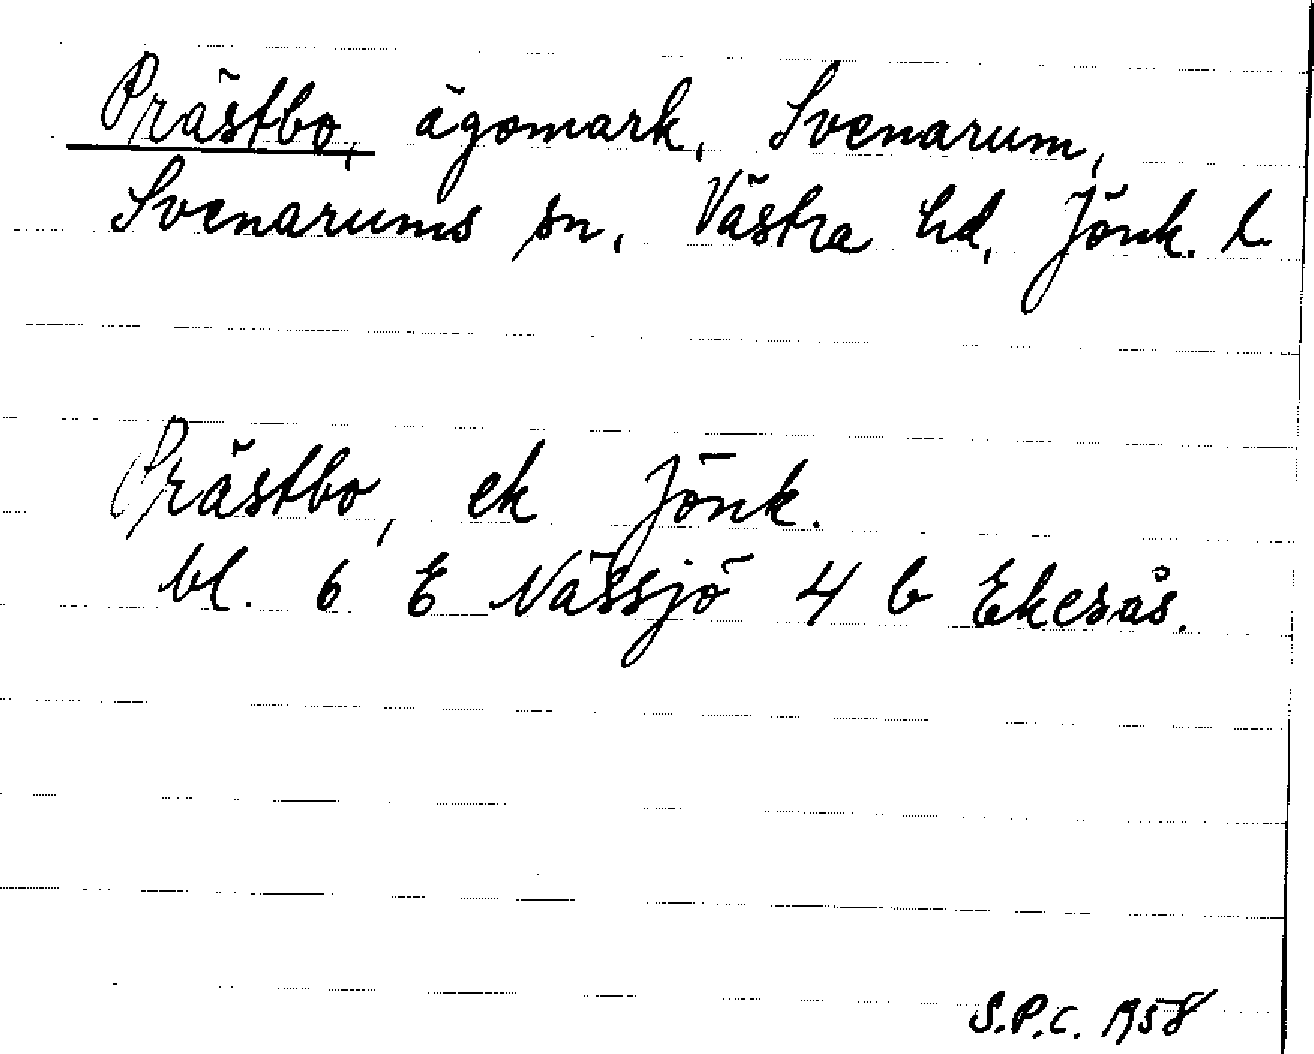 Prästbo, ägomark, Svenarum,
Svenarums sn, Västra hd, Jönk. l.
Prästbo, ek Jönk.
bl. 6 E Nässjö 4 b Ekesås.
S.P.C. 1958